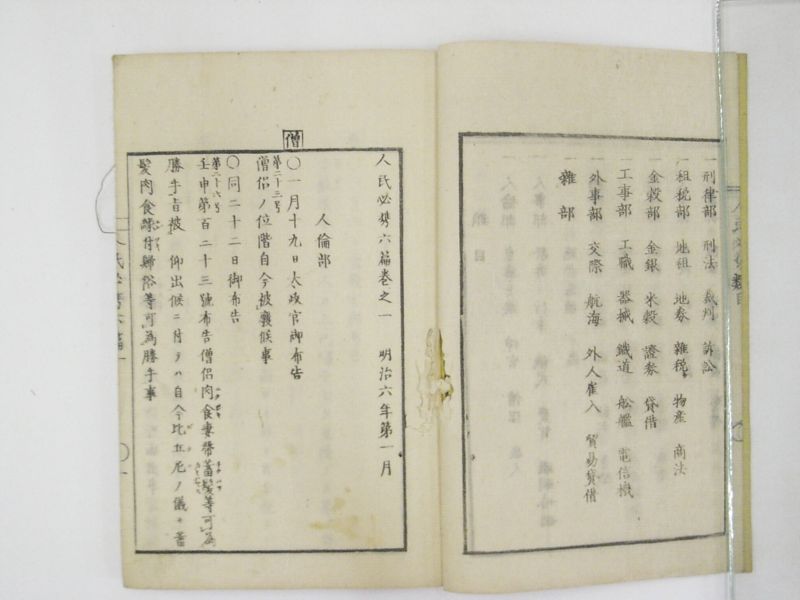 一刑律部　刑法　裁判　訴訟
一租税部　地租　地券　雜税　物産　商法
一金穀部　金銀　米穀　證券　貸借
一工事部　工職　器械　鐵道　舩艦　電信機
一外事部　交際　航海　外人雇入　貿易貸借
一雜部
人民必携六篇巻之一　明治六年第一月
人倫部
僧
〇一月十九日太政官御布告
第二十二号
僧侶ノ位階自今被廢候事
〇同二十二日御布告
第二十六号
壬申第百二十三號布告僧侶肉食妻帶蓄髪等可為
勝手旨被　仰出候ニ付テハ自今比丘尼ノ儀モ蓄
髪肉食縁付歸俗等可為勝手事